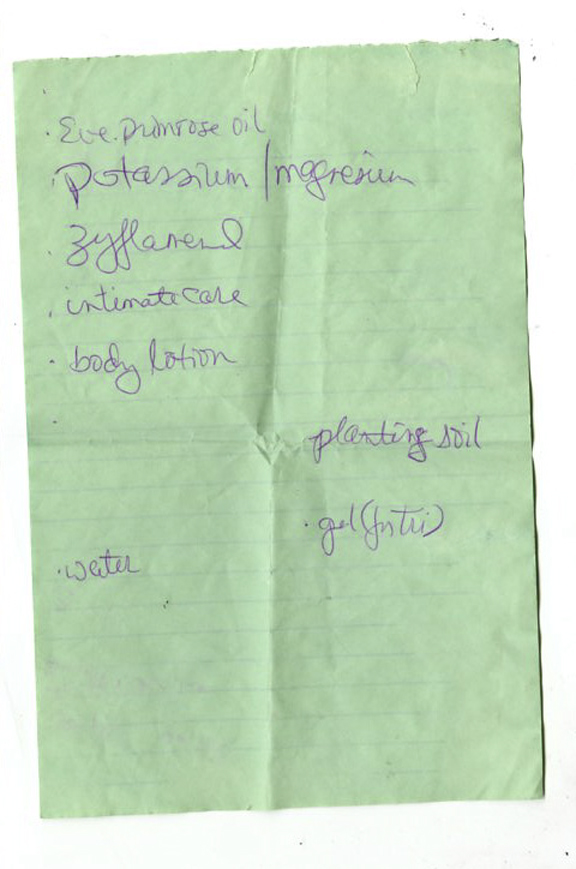 · Eve. primrose oil
· potassium / magnesium
· zyflamend
· intimate care
· body lotion
·
planting soil
· gel (for tri)
· water